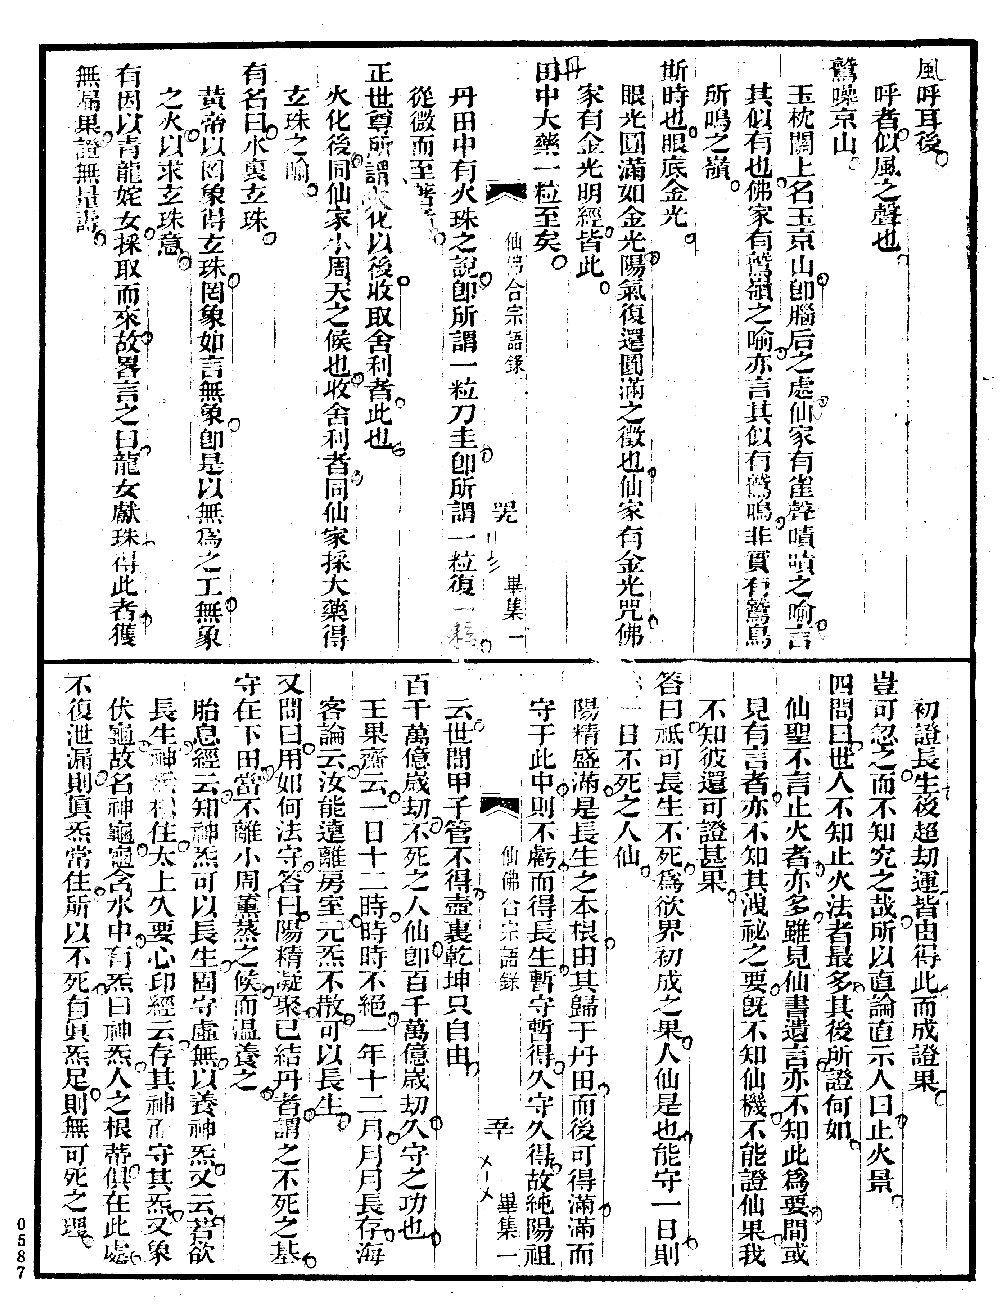 風呼耳後
呼者似風之聲也
鷲噪京山
玉枕關上名玉京山卽腦后之處仙家有雀聲嘖嘖之喻言
其似有也佛家有鷲嶺之喻亦言其似有鷲鳴非實有鷲鳥
所鳴之嶺
斯時也眼底金光
眼光圓滿如金光陽氣復還圓滿之徵也仙家有金光咒佛
家有金光明經皆此
丹田中大藥一粒至矣
仙佛合宗語錄
畢集一
丹田中有火珠之說卽所謂一粒刀圭卽所謂一粒復一粒
從微而至著者
正世尊所謂火化以後收取舍利者此也
火化後同仙家小周天之候也收舍利者同仙家採大藥得
玄珠之喻
有名曰水裏玄珠
黃帝以罔象得玄珠罔象如言無象卽是以無爲之工無象
之火以求玄珠意
有因以青龍姹女採取而來故畧言之曰龍女獻珠得此者獲
無漏果證無量壽
初證長生後超劫運皆由得此而成證果
豈可忽之而不知究之哉所以直論直示人曰止火景
四問曰世人不知止火法者最多其後所證何如
仙聖不言止火者亦多雖見仙書遺言亦不知此爲要間或
見有言者亦不知其洩祕之要旣不知仙機不能證仙果我
不知彼還可證甚果
答曰祇可長生不死爲欲界初成之果人仙是也能守一日則
一日不死之人仙
陽精盛滿是長生之本根由其歸于丹田而後可得滿滿而
守于此中則不虧而得長生暫守暫得久守久得故純陽祖
仙佛合宗語錄
畢集一
云世間甲子管不得壺裏乾坤只自由
百千萬億歲劫不死之人仙卽百千萬億歲劫久守之功也
王果齋云一日十二時時時不絕一年十二月月月長存海
客論云汝能遠離房室元炁不散可以長生
又問曰用如何法守答曰陽精凝聚已結丹者謂之不死之基
守在下田當不離小周薰蒸之候而温養之
胎息經云知神炁可以長生固守虛無以養神炁又云若欲
長生神炁相住太上久要心印經云存其神而守其炁又象
伏龜故名神龜靈含水中有炁曰神炁人之根蒂俱在此處
不復泄漏則眞炁常住所以不死有眞炁足則無可死之理
0587